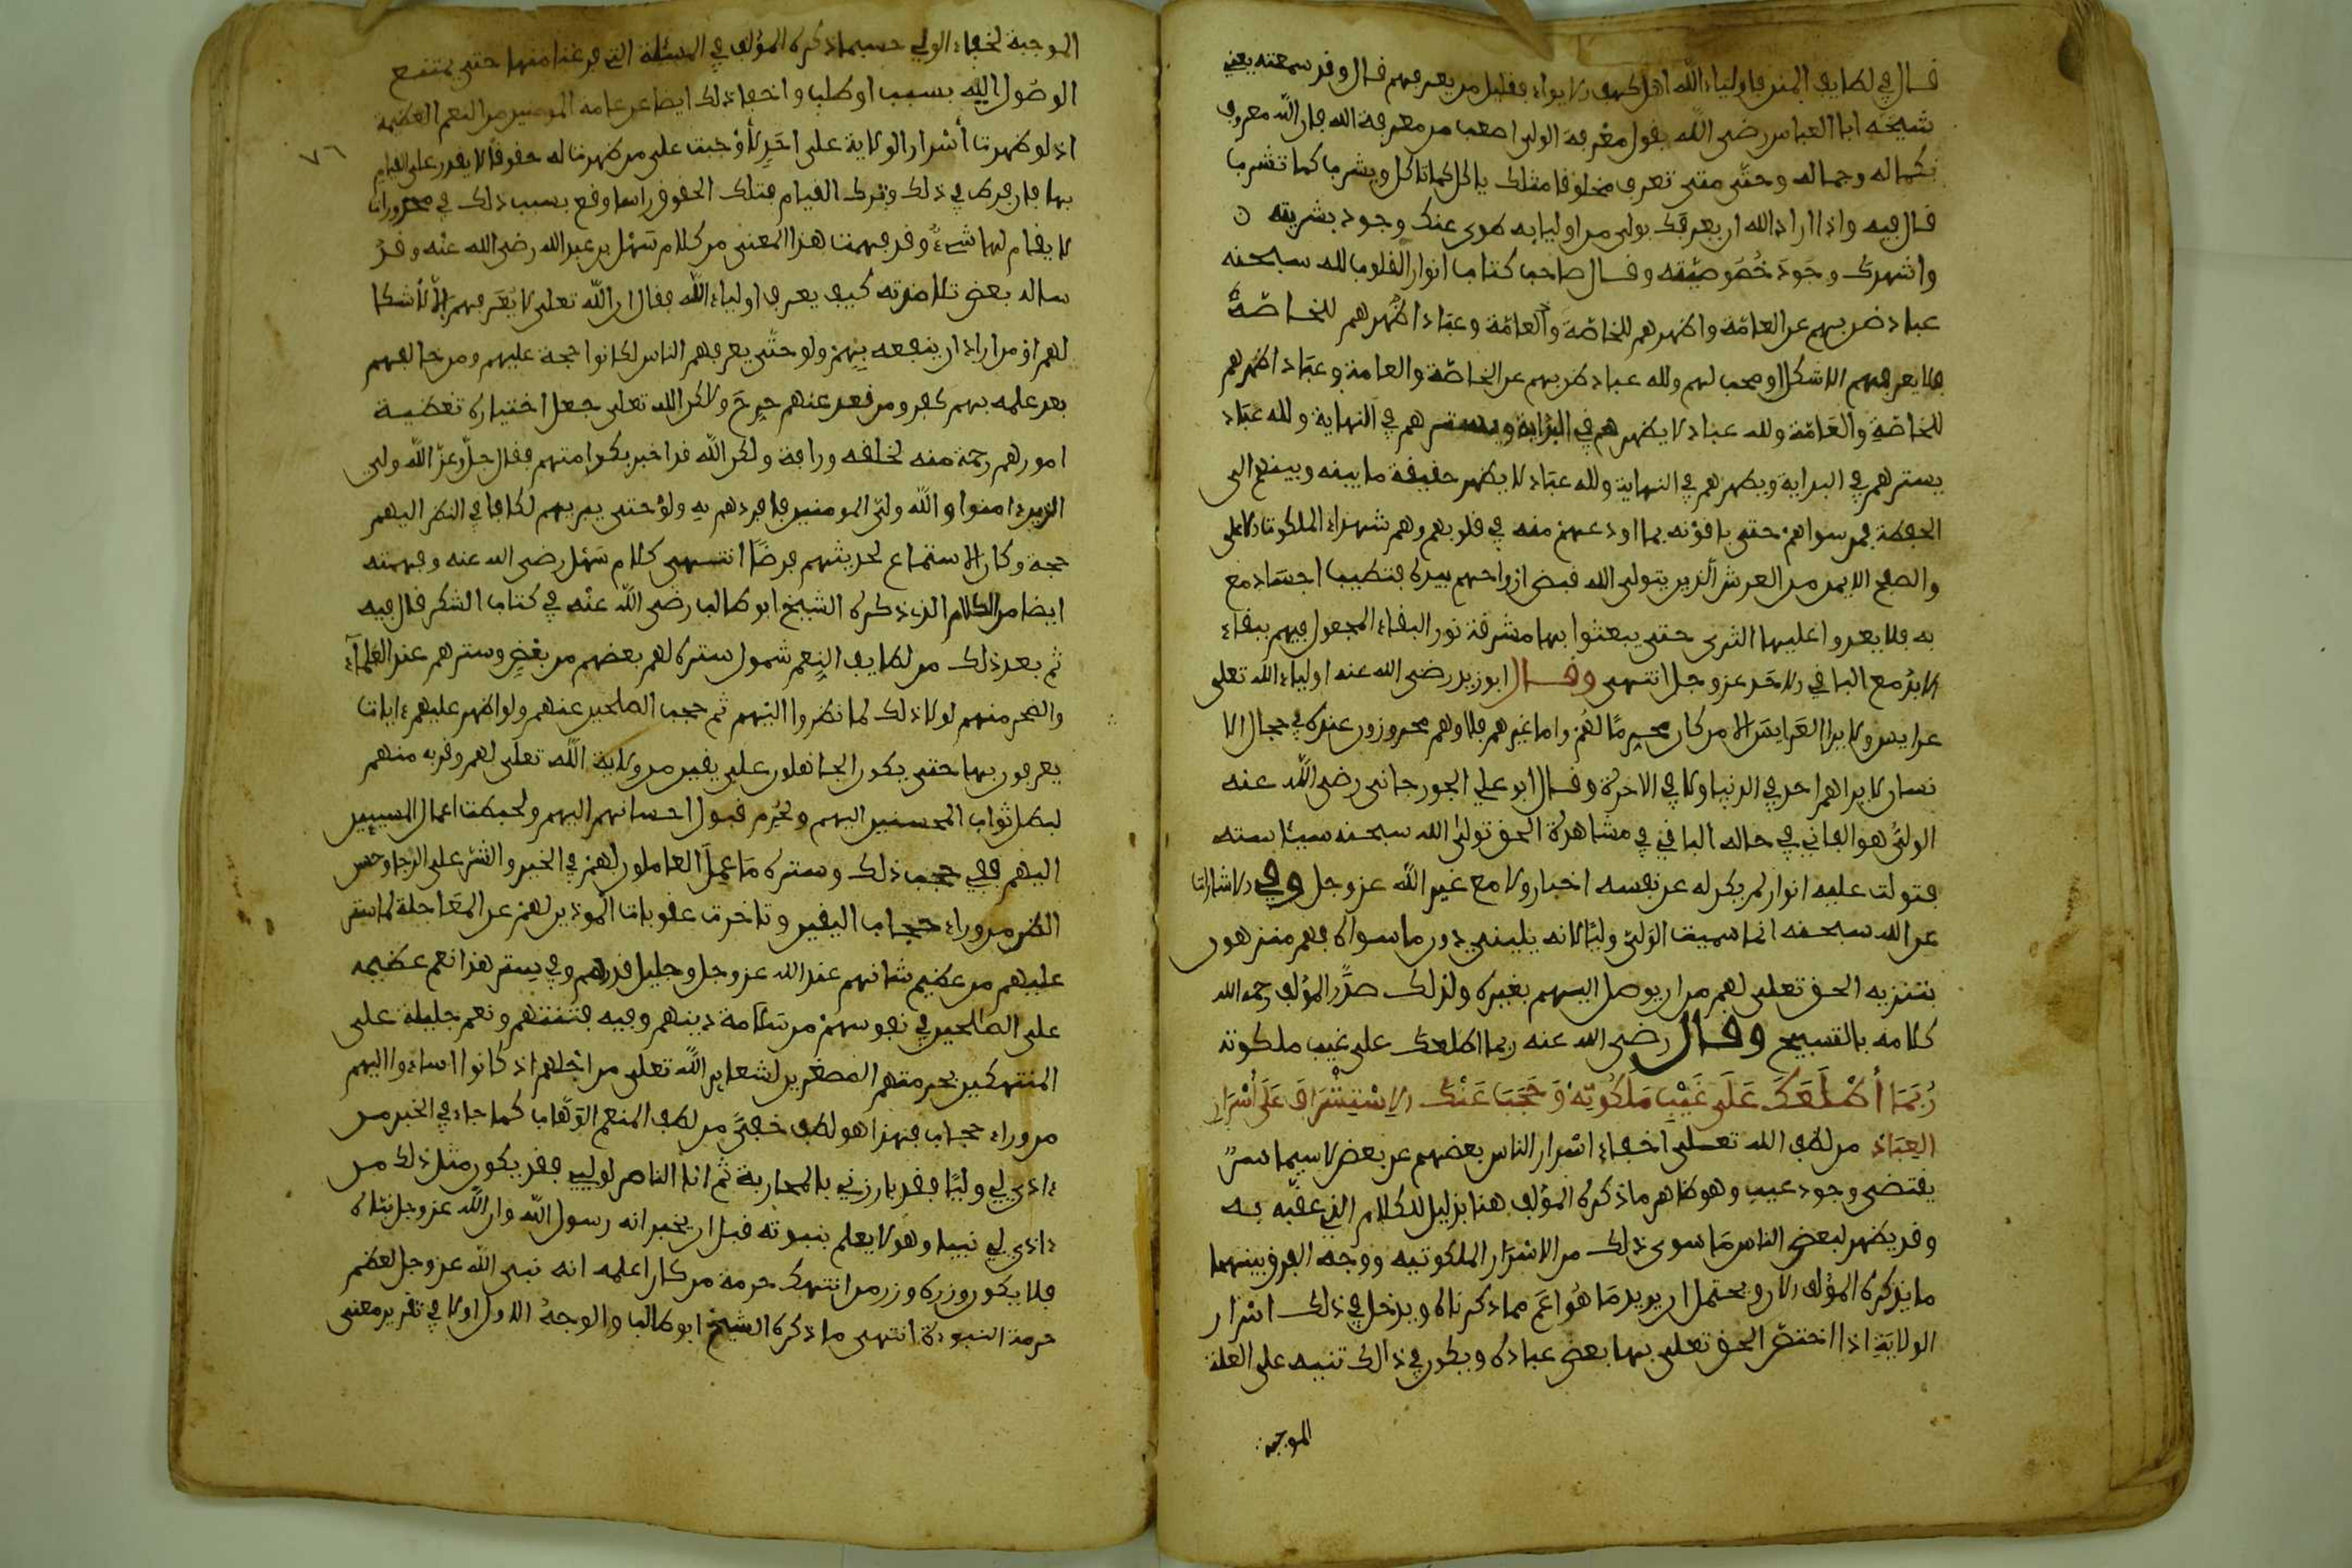 قال في لطايف المنن فاولياء الله اهل كهف الايواء فقليل من يعرفهم قال وقد سمعته يعني
شيخه ابا العباس رضي الله يقول معرفة الولي اصعب من معرفة الله فان الله معروف
بكماله وجماله وحتى متى تعرف مخلوقا مثلك ياكل كما تاكل ويشرب كما تشرب
قال فيه واذا اراد الله ان يعرفك بولي من اوليايه طوى عنك وجود بشريته ن
واشهدك وجود خصوصيته وقال صاحب كتاب انوار القلوب لله سبحنه
عباد ضن بهم عن العامة واظهرهم للخاصة والعامة وعباد اظهرهم للخاصة
فلا يعرفهم الا شكل او محب لهم ولله عباد ضن بهم عن الخاصة والعامة وعباد اظهرهم
للخاصة والعامة ولله عباد لا يظهرهم في البداية ويسترهم في النهاية ولله عباد
يسترهم في البداية ويظهرهم في النهاية ولله عباد لا يظهر حقيقة ما بينه وبينهم الى
الحفظة فمن سواهم حتى يلقوته بما اودعهم منه في قلوبهم وهم شهداء الملكوت الاعلى
والصفح الايمن من العرش الذين يتولى الله قبض ارواحهم بيده فتطيب اجسادهم
به فلا يعدوا عليها الثرى حتى يبعثوا بها مشرقة نور البقاء المجعول فيهم ببقاء
الابد مع الباقي الاحد عز وجل انتهى وقال ابو زيد رضي الله عنه اولياء الله تعلى
عرايس ولا يرا العرايس الا من كان محرما لهم واما غيرهم فلا وهم مخدرون عنده في حجال الا
نسان لا يراهم احد في الدنيا ولا في الاخرة وقال ابو علي الجورجاني رضي الله عنه
الولي هو الفاني في حاله الباقي في مشاهدة الحق تولى الله سبحنه سياسته
فتولت عليه انوار لم يكن له عن نفسه اخبار ولا مع غير الله عز وجل وفي الاشارات
عن الله سبحنه انما سميت الولي وليا لانه يليني دون ما سواي فهم منزهون
بتنزيه الحق تعلى لهم من ان يوصل اليهم بغيره ولذلك صدر المؤلف رحمه الله
كلامه بالتسبيح وقال رضي الله عنه ربما اطلعك على غيب ملكوته
رُبَّمَا أَطْلَعَكَ عَلَى غَيْبِ مَلَكُوتِهِ وَحَجَبَ عَنْكَ الاِسْتِشْرَافَ عَلَى أَسْرَارِ
العِبَادِ من لطف الله تعلى اخفاء اسرار الناس بعضهم عن بعض لا سيما سر
يقتضي وجود عيب وهو ظاهر ما ذكره المؤلف هنا بدليل للكلام الذي عقبه به
وقد يظهر لبعض الناس ما سوى ذلك من الاسرار الملكوتيه ووجه الفرق بينهما
ما يذكره المؤلف الان ويحتمل ان يريد ما هو اعم مما ذكرناه ويدخل في ذلك اسرار
الولاية اذا اختص الحق تعلى بها بعض عباده ويكون في ذالك تنبيه على العلة
الموجبة
٧٦
الموجبة لخفاء الولي حسبما ذكره المؤلف في المسئلة التي فرغنا منها حتى يمتنع
الوصول اليه بسبب او طلب واخفا ذلك ايضا عن عامة المومنين من النعم العظيمة
اذ لو ظهرت أسرار الولاية على احد لأوجبت على من ظهرت له حقوقا لا يقدر على القيام
بها فان فرط في ذلك وترك القيام بتلك الحقوق راسا وقع بسبب ذلك في محذورات
لا يقام لها شيء وقد فهمت هذا المعنى من كلام سهل بن عبد الله رضي الله عنه وقد
ساله بعض تلامذته كيف يعرف اولياء الله فقال ان الله تعلى لا يعرفهم الا لأشكا
لهم او من اراد ان ينفعه بهم ولو حتى يعرفهم الناس لكانوا حجة عليهم ومن خالفهم
بعد علمه بهم كفر ومن قعد عنهم حرج ولاكن الله تعلى جعل اختياره تغطية
امورهم رحمة منه لخلقه ورافة ولكن الله قد اخبر بكرامتهم فقال جل وعز الله ولي
الذين ءامنوا والله ولي المومنين فافردهم به ولو حتى يبريهم لكان في النظر اليهم
حجة وكان الاستماع لحديثهم فرضا انتهى كلام سهل رضي الله عنه وفهمته
ايضا من الكلام الذي ذكره الشيخ ابو طالب رضي الله عنه في كتاب الشكر قال فيه
ثم بعد ذلك من لطايف النعم شمول ستره لهم بعضهم من بعض وسترهم عند العلمآء
والصحر منهم لولا ذلك لما نظروا اليهم ثم حجب الصلحين عنهم ولو اظهر عليهم ءايات
يعرفون بها حتى يكون الجاهلون على يقين من ولاية الله تعلى لهم وقربه منهم
لبطل ثواب المحسنين اليهم ولحرم قبول احسانهم اليهم ولحبطت اعمال المسيين
اليهم ففي حجب ذلك وستره ما عمل العاملون لهم في الخير والشر على الرجا وحسن
الظن من وراء حجاب اليقين وتاخرت عقوبات الموذين لهم عن المعاجلة لما ستر
عليهم من عظيم شانهم عند الله عز وجل وجليل قدرهم وفي ستر هذا نعم عظيمه
على الصلحين في نفوسهم من سلامة دينهم وفيه فتنتهم ونعم جليلة على
المنتهكين بحرمتهم المصغرين لشعاير الله تعلى من اجلهم اذ كانوا اساءوا اليهم
من وراء حجاب فهذا هو لطف خفي من لطف المنعم الوهاب كما جاء في الخبر من
ءاذى لي وليا فقد بارزني بالمحاربة ثم انا الناصر لوليي فقد يكون مثل ذلك من
ءاذى لي نبيا وهو لا يعلم بنبوته قبل ان يخبر انه رسول الله وان الله عز وجل نباه
فلا يكون وزره وزر من انتهك حرمة من كان اعلمه انه نبي الله عز وجل لعظم
حرمة النبوة انتهى ما ذكره الشيخ ابو طالب والوجه الاول اولا في تقرير معنى